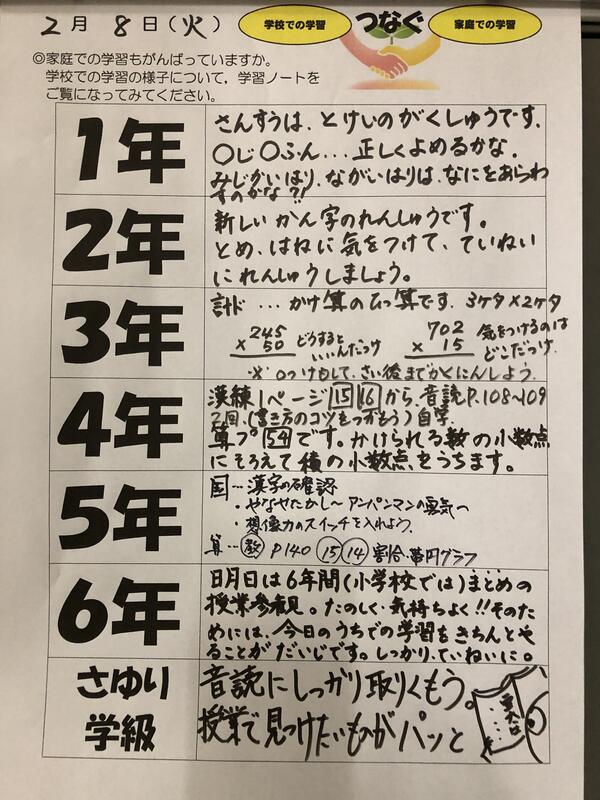 2月 8日(火)
学校での学習 つなぐ 家庭での学習
◎家庭での学習もがんばっていますか。
学校での学習の様子について，学習ノートを
ご覧になってみてください。
1年
さんすうは、とけいのがくしゅうです。
○じ○ふん…正しくよめるかな。
みじかいはり、ながいはりは、なにをあらわ
すのかな?!
2年
新しいかん字のれんしゅうです。
とめ、はねに気をつけて、ていねい
にれんしゅうしましょう。
3年
計ド…かけ算のひっ算です。3ケタ×2ケタ
245
×50
どうすると
いいんだっけ
702
×15
気をつけるのは
どこだっけ
※○つけもして、さい後までかくにんしよう。
4年
漢練1ページ 15 16 から、音読P.108~109
2回、(書き方のコツをつかもう)自学
算プ 54 です。かけられる数の小数点
にそろえて積の小数点をうちます。
5年
国…漢字の確認
・やなせたかし～アンパンマンの勇気へ
・想像力のスイッチを入れよう。
算…教 P140 15 14 割合・帯円グラフ
6年
日月日は6年間(小学校では)まとめの
授業参観。たのしく、気持ちよく!!そのた
めには、今日のうちでの学習をきちんとや
ることがだいじです。しっかり、ていねいに。
さゆり
学級
音読にしっかり取りくもう。
授業で見つけたいものがパッと